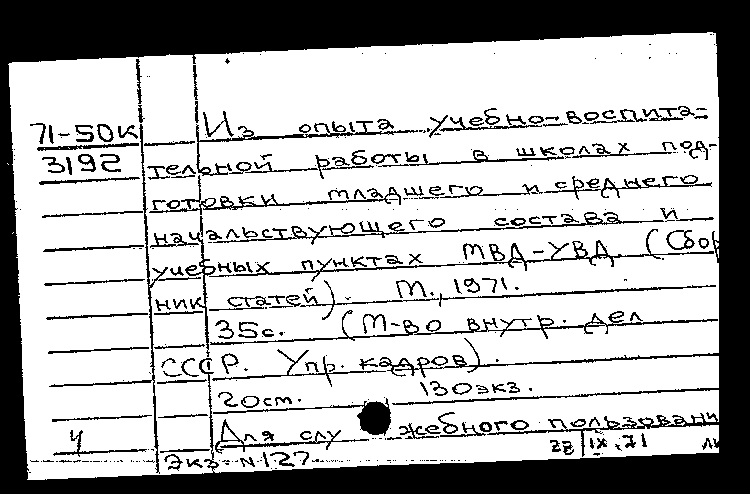 71-50к Из опыта учебно-воспита=
3192 тельной работы в школах под-
готовки младшего и среднего
начальствующего состава и
учебных пунктах МВД-УВД. (Сбор
ник статей). М., 1971.
35с. (М-во внутр. дел
СССР. Упр. кадров).
20см. 130экз.
Ч Для служебного пользовани
Экз. N127. 28/IX.71